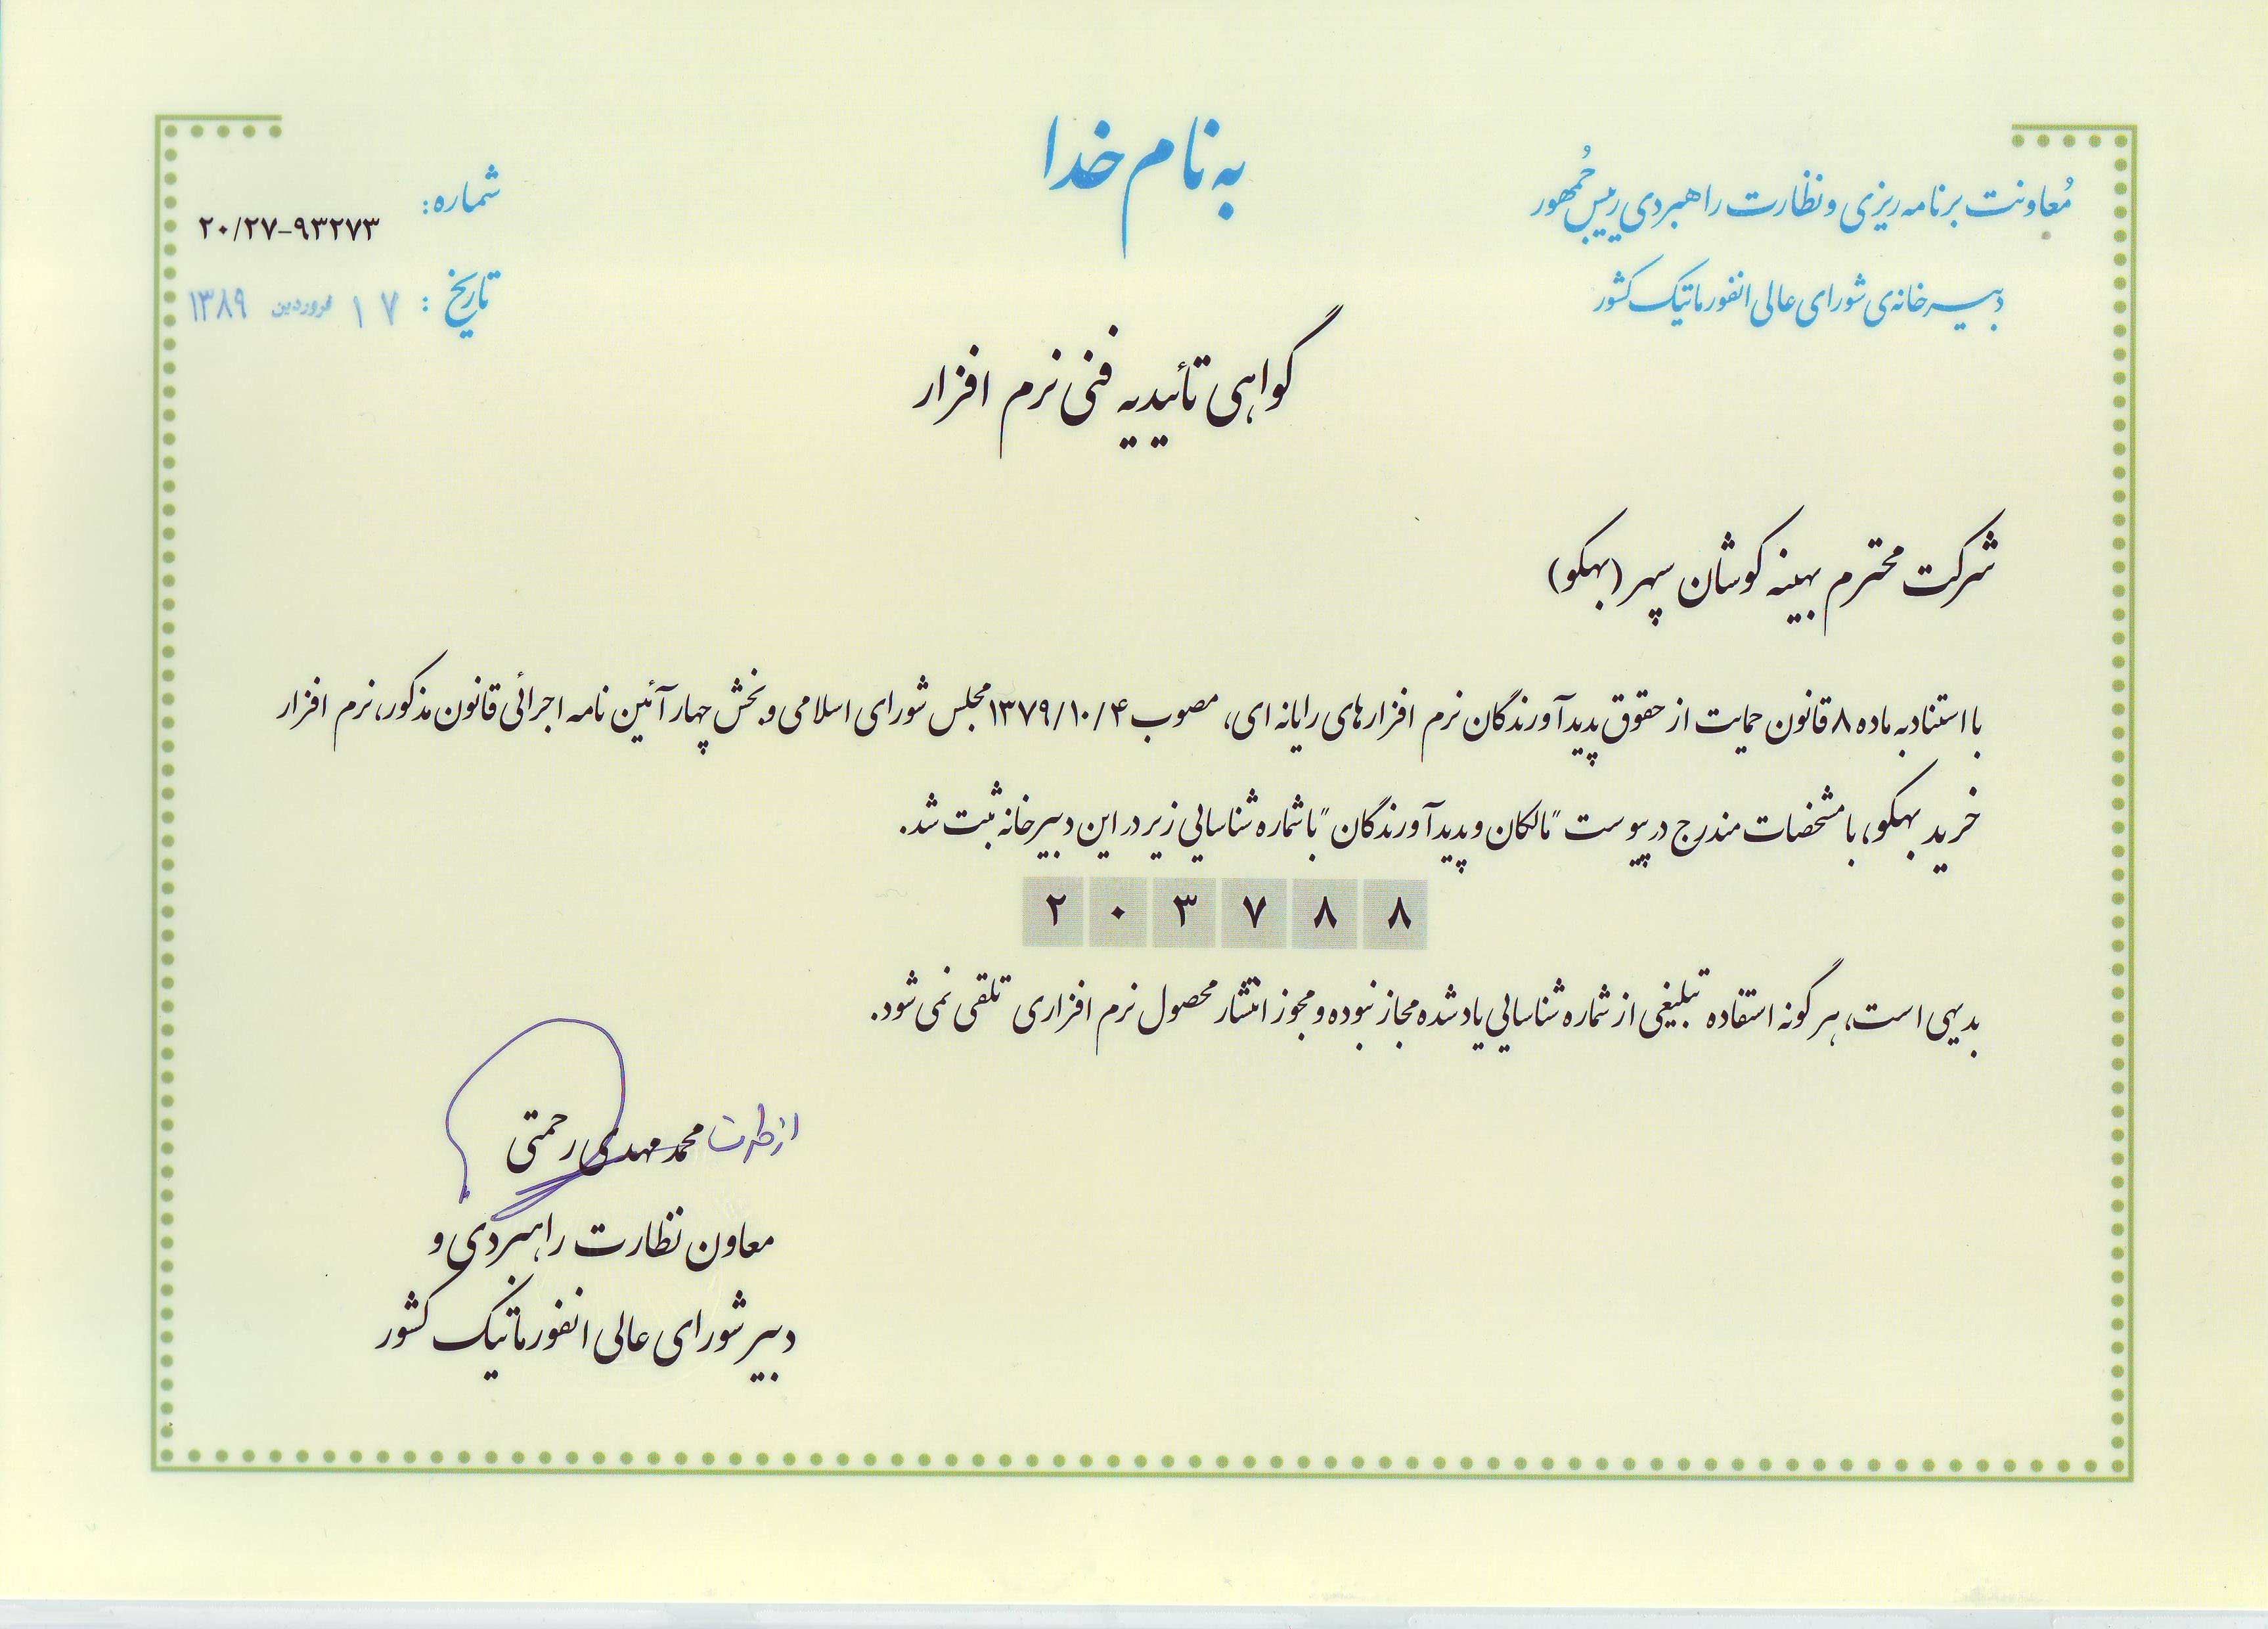 به نام خدا
معاونت برنامه ریزی و نظارت راهبردی رییس جُمهور
دبیرخانه‌ی شورای عالی انفورماتیک کشور
شماره:
۲۰/۲۷-۹۳۲۷۳
تاریخ: ۱۷ فروردین ۱۳۸۹
گواهی تأییدیه فنی نرم افزار
شرکت محترم بهینه کوشان سپهر (بهکو)
با استناد به ماده ۸ قانون حمایت از حقوق پدیدآورندگان نرم افزارهای رایانه ای، مصوب ۱۳۷۹/۱۰/۴ مجلس شورای اسلامی و بخش چهار آئین نامه اجرائی قانون مذکور، نرم افزار
خرید بهکو، با مشخصات مندرج در پیوست "مالکان و پدیدآورندگان" با شماره شناسایی زیر در این دبیرخانه ثبت شد.
۲۰۳۷۸۸
بدیهی است، هر گونه استفاده تبلیغی از شماره شناسایی یاد شده مجاز نبوده و مجوز انتشار محصول نرم افزاری تلقی نمی شود.
از طرف محمد مهدی رحمتی
معاون نظارت راهبردی و
دبیر شورای عالی انفورماتیک کشور